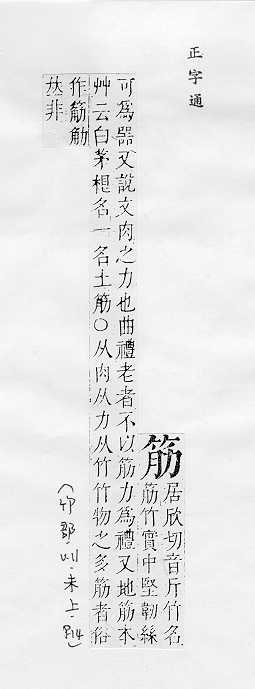 正字通
筋
居欣切音斤竹名
筋竹實中堅韌絲
可為器又說文肉之力也曲禮老者不以筋力為禮又地筋本
艸云白茅根名一名土筋〇从肉从力从竹竹物之多筋者俗
作筋觔
𠀤非